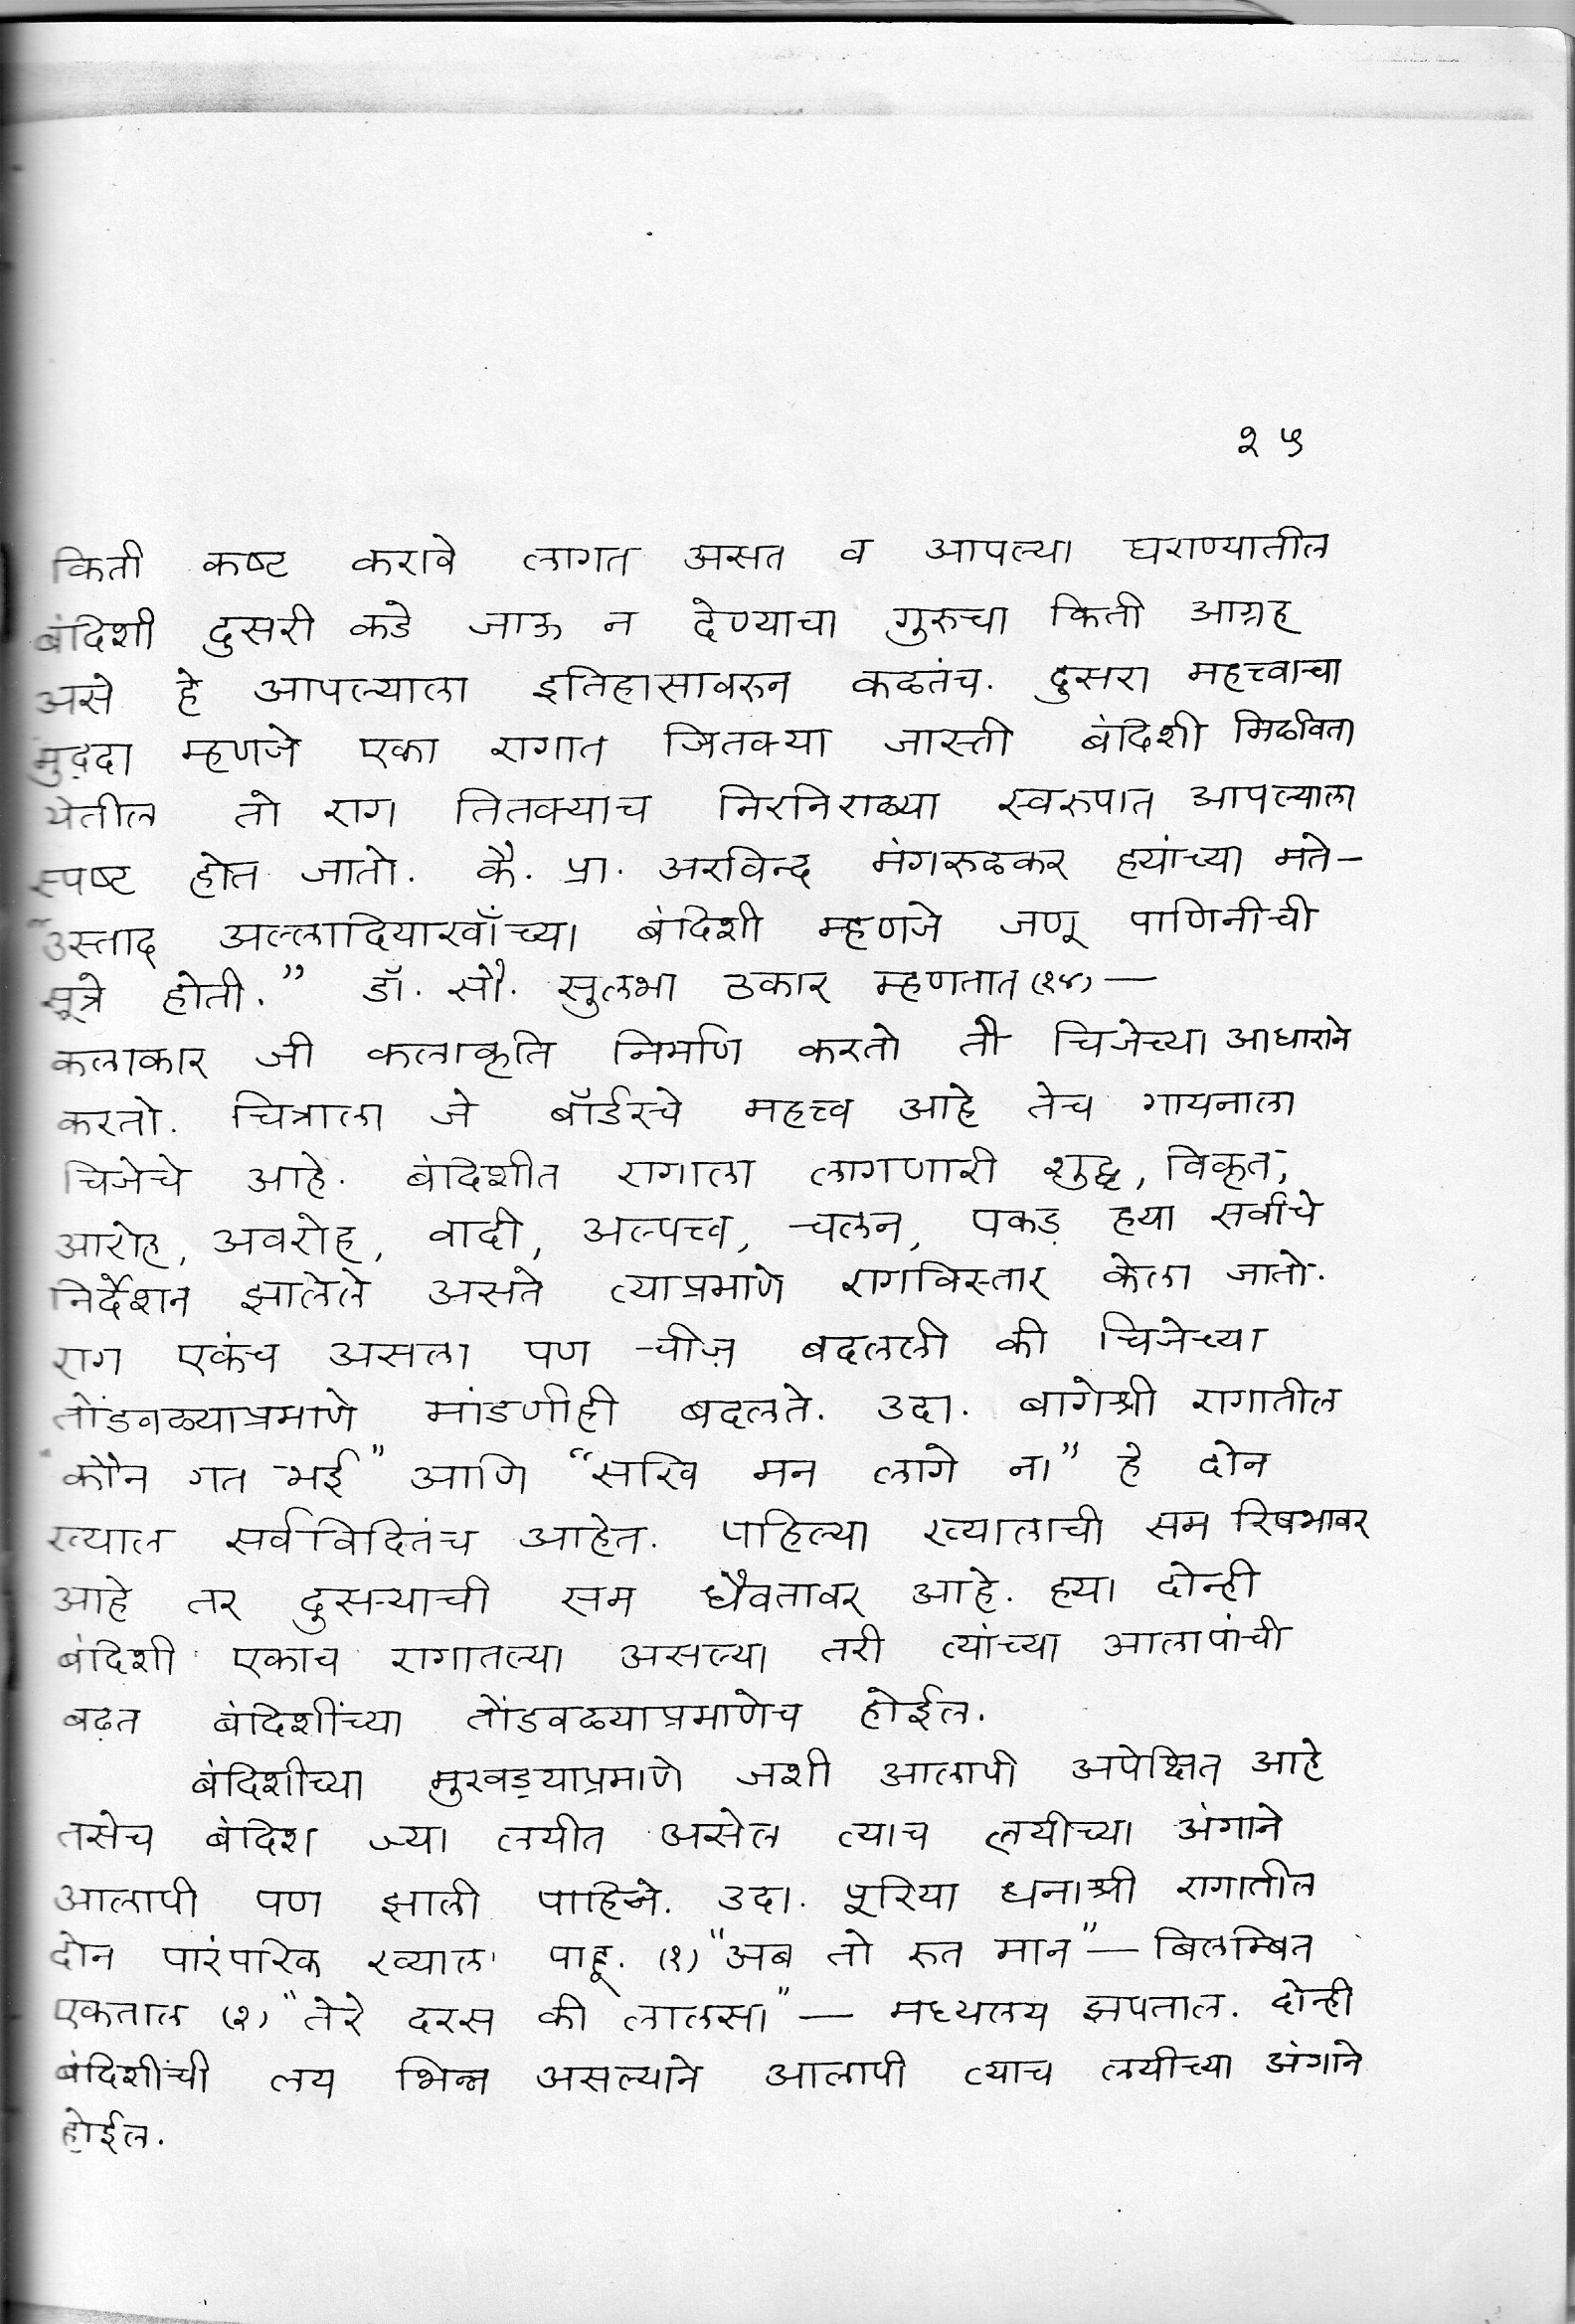 २५
किती कष्ट करावे लागत असत व आपल्या घराण्यातील
बंदिशी दुसरी कडे जाऊ न देण्याचा गुरुचा किती आग्रह
असे हे आपल्याला इतिहासावरुन कळतंच. दुसरा महत्त्वाचा
मुद्दा म्हणजे एका रागात जितक्या जास्ती बंदिशी मिळविता
येतील तो राग तितक्याच निरनिराळ्या स्वरुपात आपल्याला
स्पष्ट होत जातो. कै. प्रा. अरविन्द मंगरुळकर ह्यांच्या मते—
"उस्ताद अल्लादियाखाँच्या बंदिशी म्हणजे जणू पाणिनीची
सूत्रे होती." डॉ. सौ. सुलभा ठकार म्हणतात (१४) —
कलाकार जी कलाकृति निर्माण करतो ती चिजेच्या आधाराने
करतो. चित्राला जे बॉर्डरचे महत्त्व आहे तेच गायनाला
चिजेचे आहे. बंदिशीत रागाला लागणारी शुद्ध, विकृत,
आरोह, अवरोह, वादी, अल्पत्त्व, चलन, पकड़ ह्या सर्वांचे
निर्देशन झालेले असते त्याप्रमाणे रागविस्तार केला जातो.
राग एकंच असला पण चीज़ बदलली की चिजेच्या
तोंडवळ्याप्रमाणे मांडणीही बदलते. उदा. बागेश्री रागातील
"कौन गत भई" आणि "सखि मन लागे ना" हे दोन
ख्याल सर्वविदितंच आहेत. पहिल्या ख्यालाची सम रिषभावर
आहे तर दुसऱ्याची सम धैवतावर आहे. ह्या दोन्ही
बंदिशी एकाच रागातल्या असल्या तरी त्यांच्या आलापांची
बढ़त बंदिशींच्या तोंडवळ्याप्रमाणेच होईल.
बंदिशीच्या मुखड्याप्रमाणे जशी आलापी अपेक्षित आहे
तसेच बंदिश ज्या लयीत असेल त्याच लयीच्या अंगाने
आलापी पण झाली पाहिजे. उदा. पूरिया धनाश्री रागातील
दोन पारंपारिक ख्याल पाहू. (१) "अब तो रुत मान" — बिलम्बित
एकताल (२) "तेरे दरस की लालसा" — मध्यलय झपताल. दोन्ही
बंदिशींची लय भिन्न असल्याने आलापी त्याच लयीच्या अंगाने
होईल.